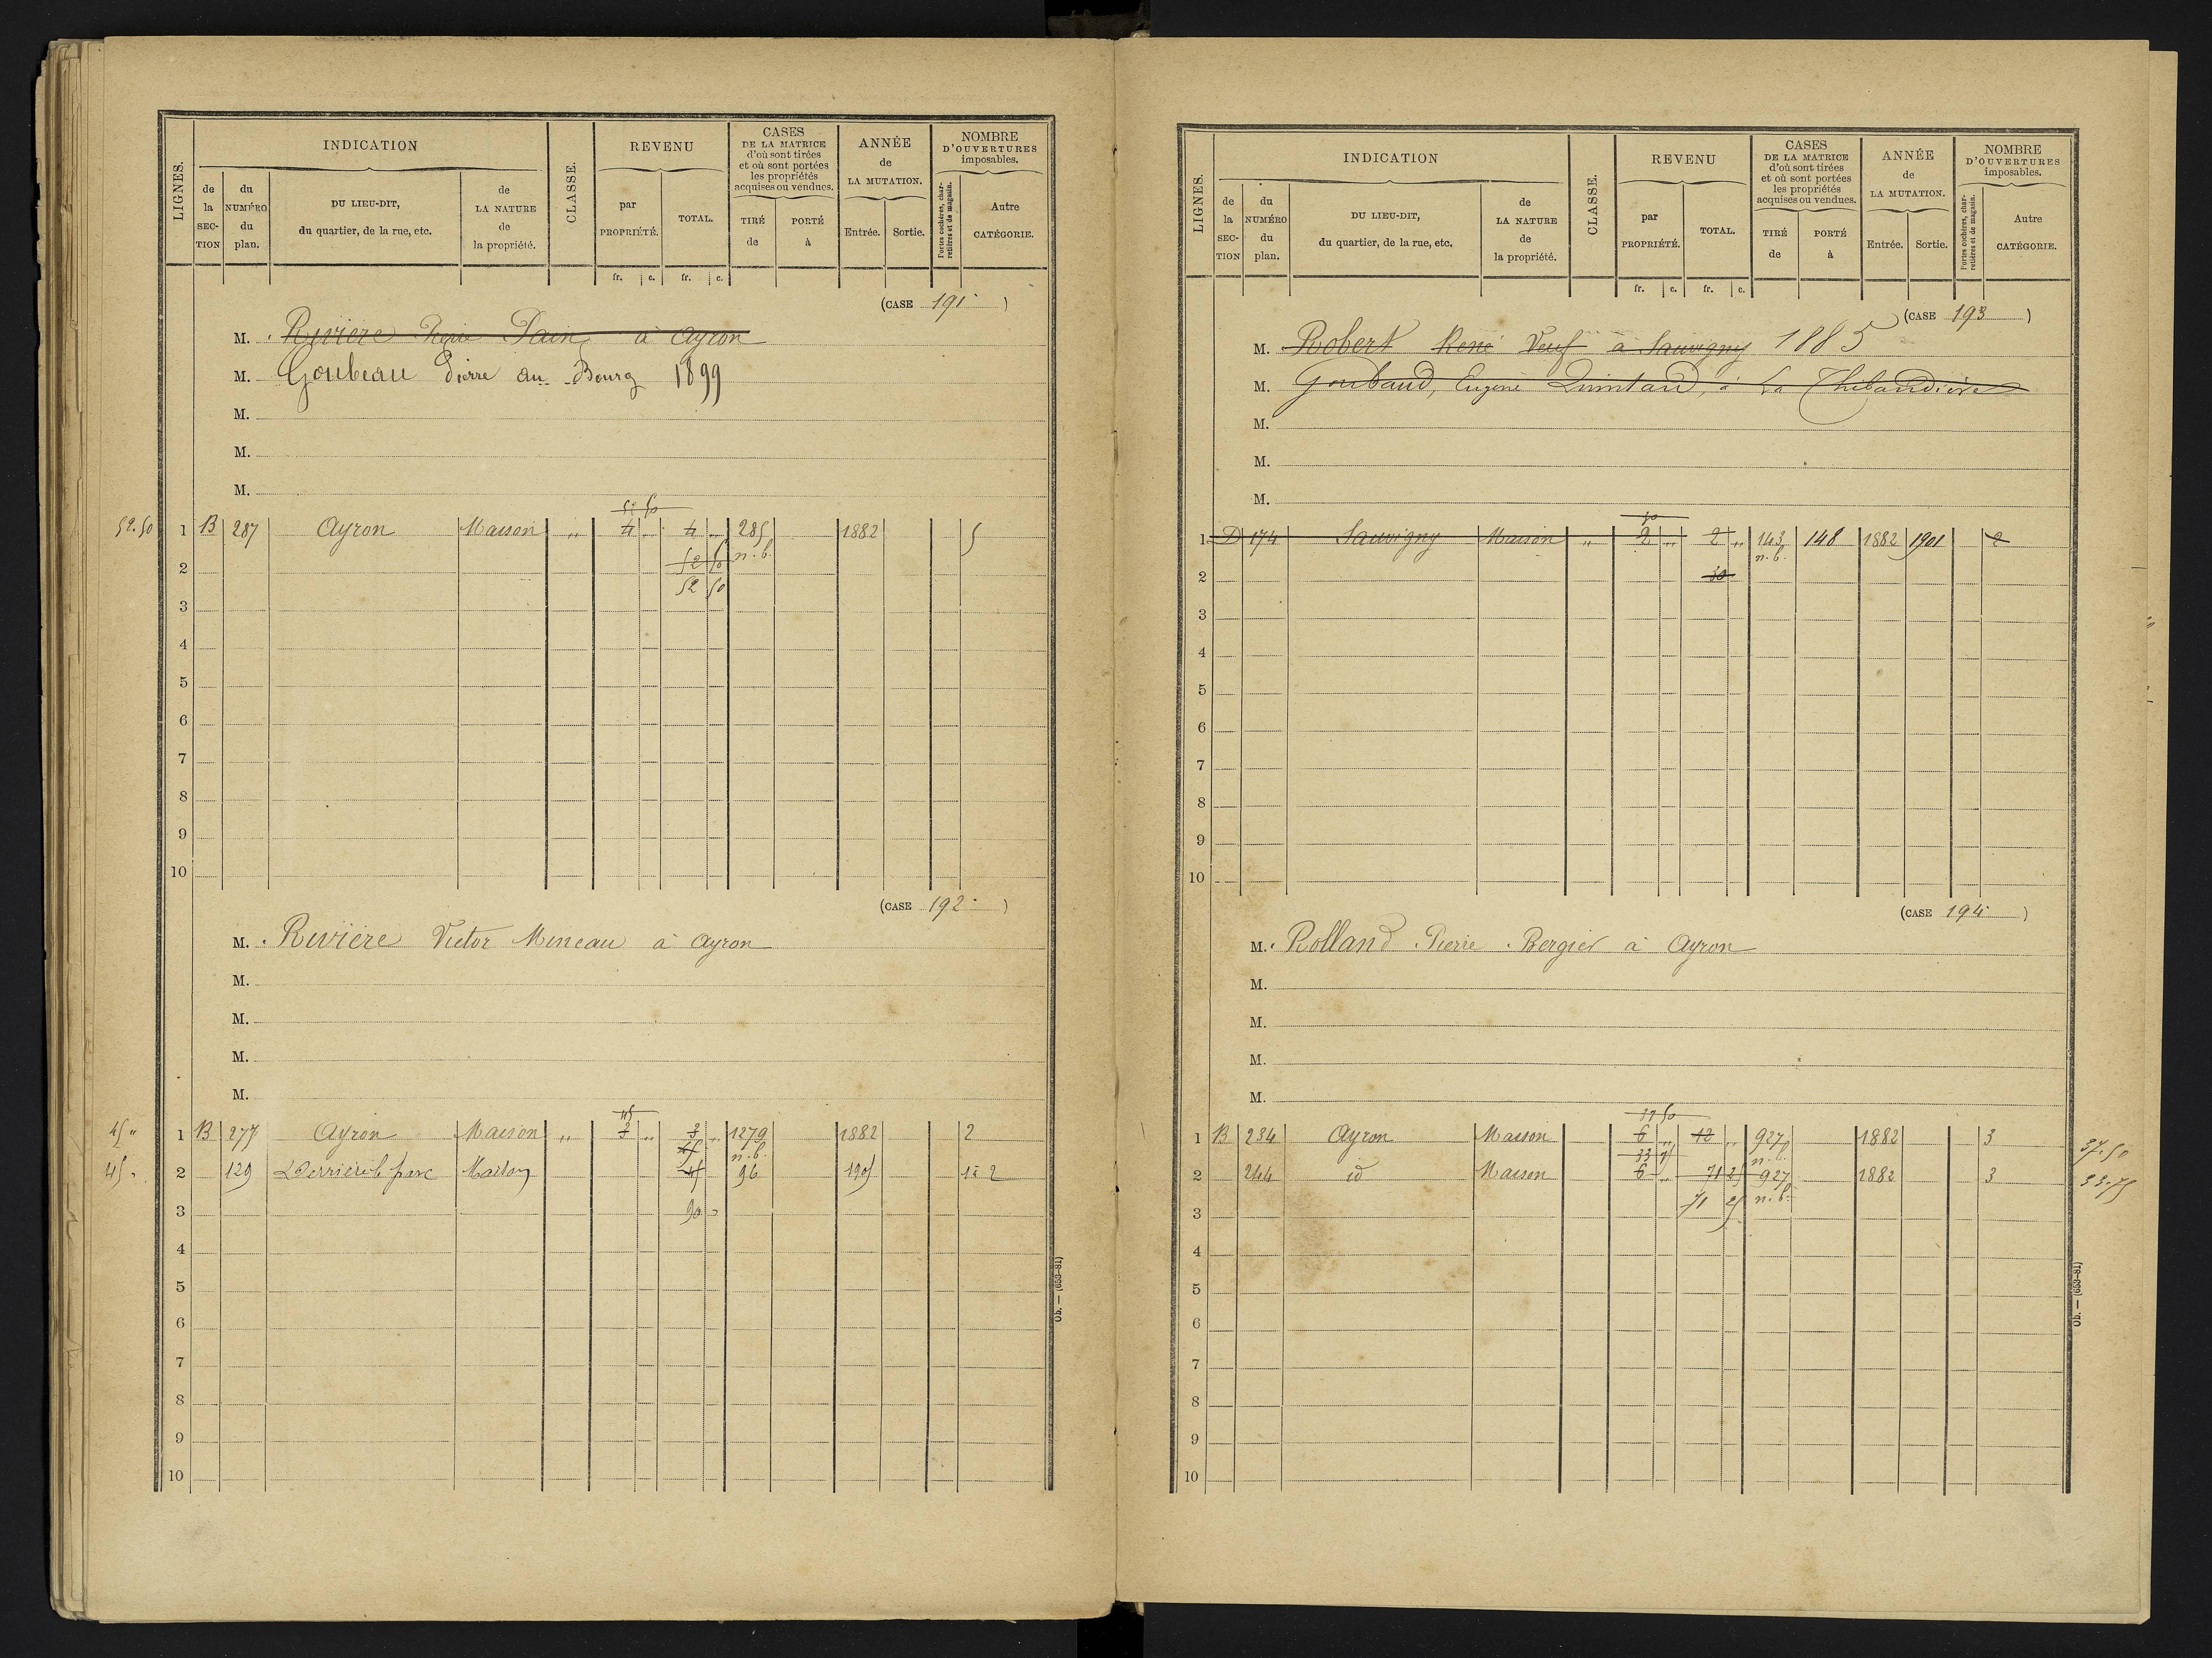 LIGNES.
INDICATION
CLASSE.
REVENU
CASES
DE LA MATRICE
d'où sont tirées
et où sont portées
les propriétés
acquises ou vendues.
ANNÉE
de
LA MUTATION.
NOMBRE
D'OUVERTURES
imposables.
de
la
SEC-
TION
du
NUMÉRO
du
plan.
DU LIEU-DIT,
du quartier, de la rue, etc.
de
LA NATURE
de
la propriété.
par
PROPRIÉTÉ.
TOTAL.
TIRÉ
de
PORTÉ
à
Entrée.
Sortie.
Portes cochères, char-
retières et de magasin.
Autre
CATÉGORIE.
fr. c. fr. c.
(CASE 191 )
M. Rivière Pain à Ayron
M. Goubeau Pierre au Bourg 1899
M.
M.
M.
52 50
52.50 1 B 287 Ayron Maison " 4 " 4 " 285 1882 5
52 50 n.b.
2
52 50
3
4
5
6
7
8
9
10
(CASE 192 )
M. Rivière Victor Mineau à Ayron
M.
M.
M.
M.
45
45 " 1 B 277 Ayron Maison " 3 " 3 " 1279 1882 2
45 n.b.
45 " 2 129 Derrière le parc Maison 45 96 1905 2
3 90 "
4
5
6
7
8
9
10
Ob. — (653-81)
LIGNES.
INDICATION
CLASSE.
REVENU
CASES
DE LA MATRICE
d'où sont tirées
et où sont portées
les propriétés
acquises ou vendues.
ANNÉE
de
LA MUTATION.
NOMBRE
D'OUVERTURES
imposables.
de
la
SEC-
TION
du
NUMÉRO
du
plan.
DU LIEU-DIT,
du quartier, de la rue, etc.
de
LA NATURE
de
la propriété.
par
PROPRIÉTÉ.
TOTAL.
TIRÉ
de
PORTÉ
à
Entrée.
Sortie.
Portes cochères, char-
retières et de magasin.
Autre
CATÉGORIE.
fr. c. fr. c.
(CASE 193 )
M. Robert René Veuf à Sauvigny 1885
M. Goubaud, Eugène Quintard, à La Thibaudière
M.
M.
M.
30
1 D 174 Sauvigny Maison " 2 " 2 " 143 148 1882 1901 2
n.b.
2 30
3
4
5
6
7
8
9
10
(CASE 194 )
M. Rolland Pierre Bergier à Ayron
M.
M.
M.
M.
37 50
1 B 234 Ayron Maison 6 " 12 " 927 1882 3 37.50
33 75 n.b.
2 244 id Maison 6 " 71 25 927 1882 3 33.75
71 25 n.b.
3
4
5
6
7
8
9
10
Ob. — (653-81)